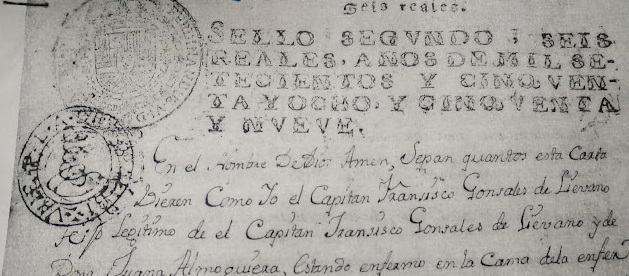 Seis reales.
SELLO SEGVNDO, SEIS
REALES, AÑOS DE MIL SE-
TECIENTOS Y CINQVEN-
TA Y OCHO, Y CINQVENTA
Y NVEVE.
En el Nombre De Dios Amen, Sepan quantos esta Carta
Vieren Como Yo el Capitan Fransisco Gonsales de Lievano
hijo Legitimo de el Capitan Fransisco Gonsales de Lievano y de
Dona Juana Almoguera, Estando enfermo en la Cama de la enfer